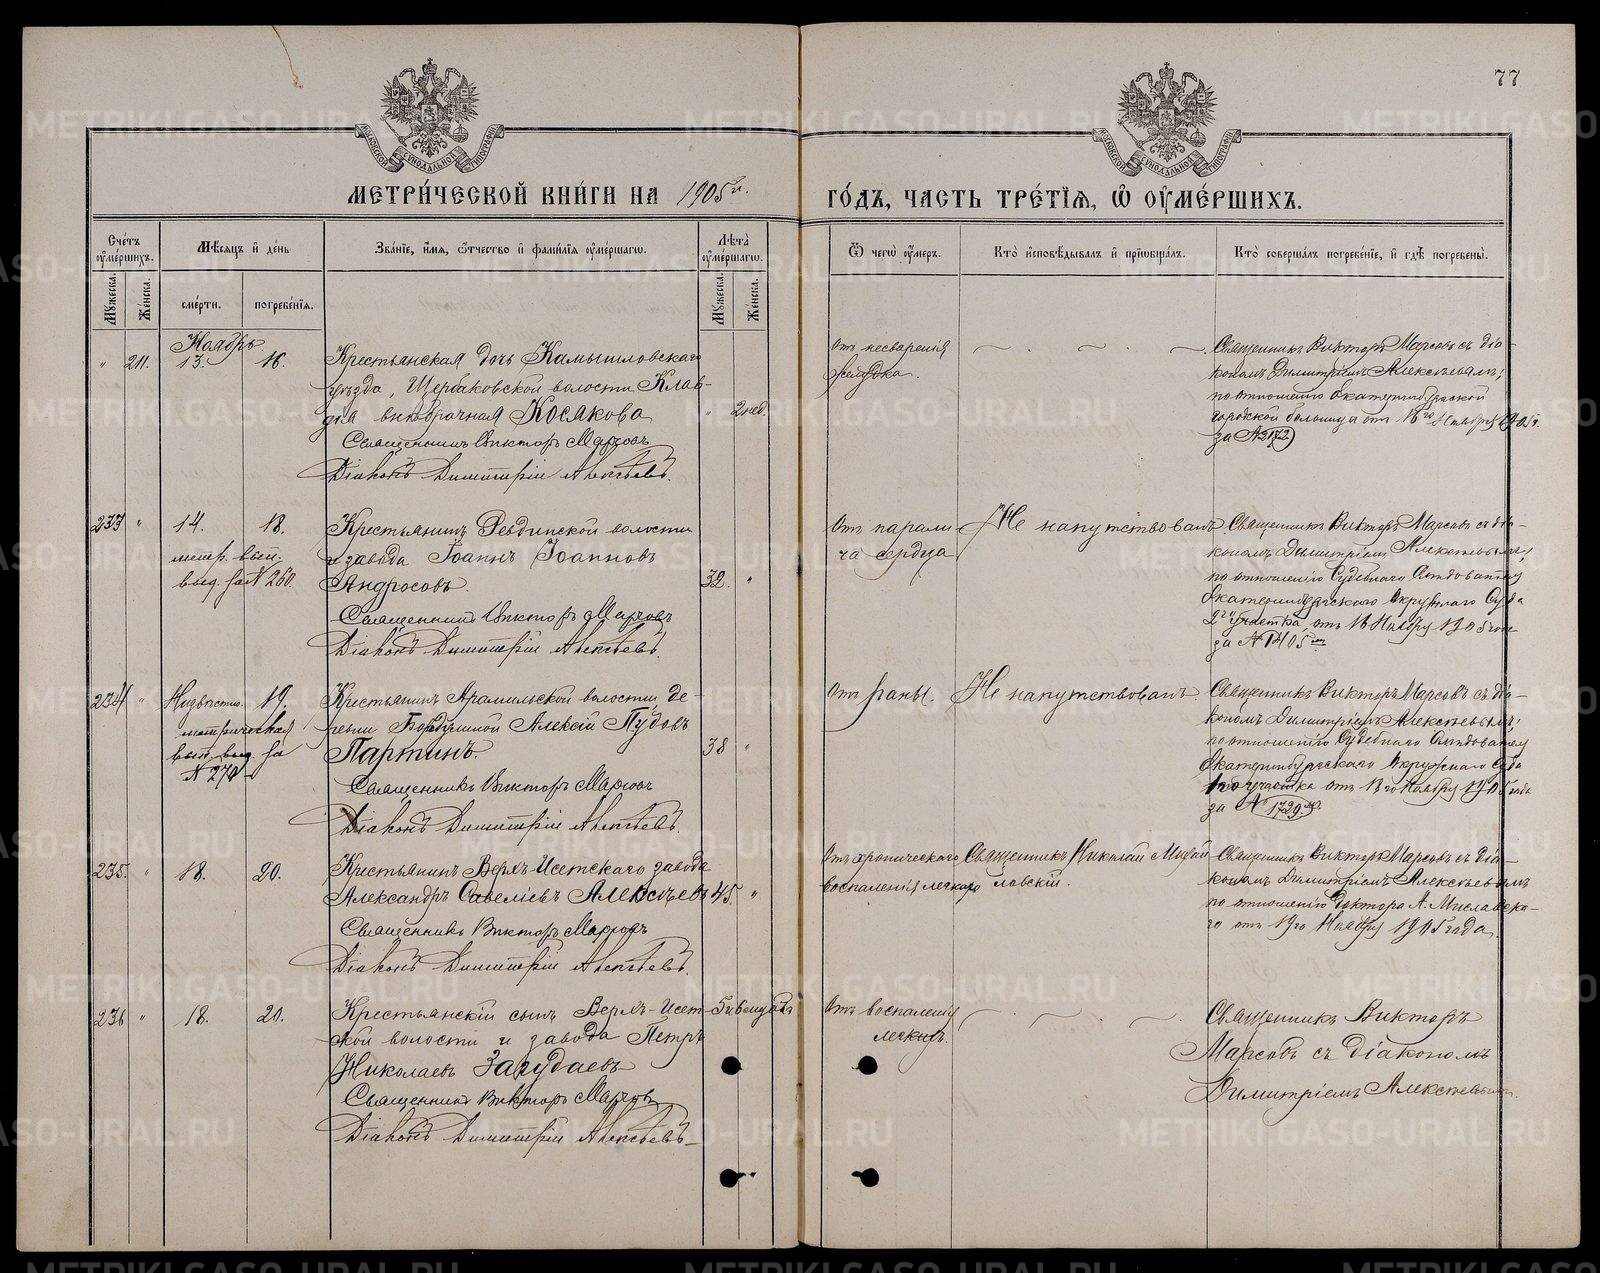 77
МОСКОВСКОЙ СѴНОДАЛЬНОЙ ТИПОГРАФІИ
МОСКОВСКОЙ СѴНОДАЛЬНОЙ ТИПОГРАФІИ
МЕТРИ́ЧЕСКОЙ КНИ́ГИ НА 1905 г.
ГО́ДЪ, ЧАСТЬ ТРЕ́ТІѦ, Ѡ ОУ҆МЕ́РШИХЪ.
Сче́тъ оу҆ме́ршихъ.
Мѣ́сяцъ и҆ де́нь
Зва́нїе, и҆́мя, ѻ҆́тчество и҆ фами́лїя оу҆ме́ршагѡ.
Лѣ́та оу҆ме́ршагѡ.
Ѿ чегѡ̀ оу҆́меръ.
Кто̀ и҆сповѣ́дывалъ и҆ прїѡбща́лъ.
Кто̀ соверша́лъ погребе́нїе, и҆ гдѣ̀ погребены̀.
Мꙋ́жеска.
Же́нска.
сме́рти.
погребе́нїя.
Мꙋ́жеска.
Же́нска.
Ноябрь.
" 211. 13. 16.
Крестьянская дочь Камышловскаго
уѣзда, Щербаковской волости Клав-
дія внѣбрачная Косакова
" 2 нед.
Священникъ Викторъ Марсовъ
Діаконъ Димитрій Алексѣевъ.
Отъ несваренія
желудка.
Священникъ Викторъ Марсовъ съ діа-
кономъ Димитріемъ Алексѣевымъ,
по отношенію Екатеринбургской
городской больницы отъ 16го Ноября 1905 г.
за № 2172
233 " 14. 18.
метр. вып.
выд. за № 260.
Крестьянинъ Ревдинской волости
и завода Іоаннъ Іоанновъ
Андросовъ.
32. "
Священникъ Викторъ Марсовъ
Діаконъ Димитрій Алексѣевъ.
Отъ парали-
ча сердца
Не напутствованъ.
Священникъ Викторъ Марсовъ съ діа-
кономъ Димитріемъ Алексѣевымъ,
по отношенію Судебнаго Слѣдователя
Екатеринбургскаго Окружнаго Суда
2го участка отъ 16 Ноября 1905 года
за № 1405
234 " Неизвѣстно. 19.
метрическая
вып. выд. за
№ 270
Крестьянинъ Арамильской волости де-
ревни Бородулиной Алексѣй Пудовъ
Партинъ.
38 "
Священникъ Викторъ Марсовъ
Діаконъ Димитрій Алексѣевъ.
Отъ раны.
Не напутствованъ.
Священникъ Викторъ Марсовъ съ діа-
кономъ Димитріемъ Алексѣевымъ,
по отношенію Судебнаго Слѣдователя
Екатеринбургскаго Окружнаго Суда
участка отъ 18го Ноября 1905 года
за № 1729
235. " 18. 20.
Крестьянинъ Верхъ-Исетскаго завода
Александръ Савеліевъ Алексѣевъ 45. "
Священникъ Викторъ Марсовъ
Діаконъ Димитрій Алексѣевъ.
Отъ хроническаго
воспаленія легкаго
Священникъ Николай
ловскій.
Священникъ Викторъ Марсовъ съ діа-
кономъ Димитріемъ Алексѣевымъ
по отношенію Доктора А. Миславска-
го отъ 19го Ноября 1905 года.
236 " 18. 20.
Крестьянскій сынъ Верхъ-Исет-
ской волости и завода Петръ
Николаевъ Загудаевъ
Священникъ Викторъ Марсовъ
Діаконъ Димитрій Алексѣевъ
Отъ воспаленія
легкихъ.
Священникъ Викторъ
Марсовъ съ діакономъ
Димитріемъ Алексѣевымъ.
METRIKI.GASO-URAL.RU